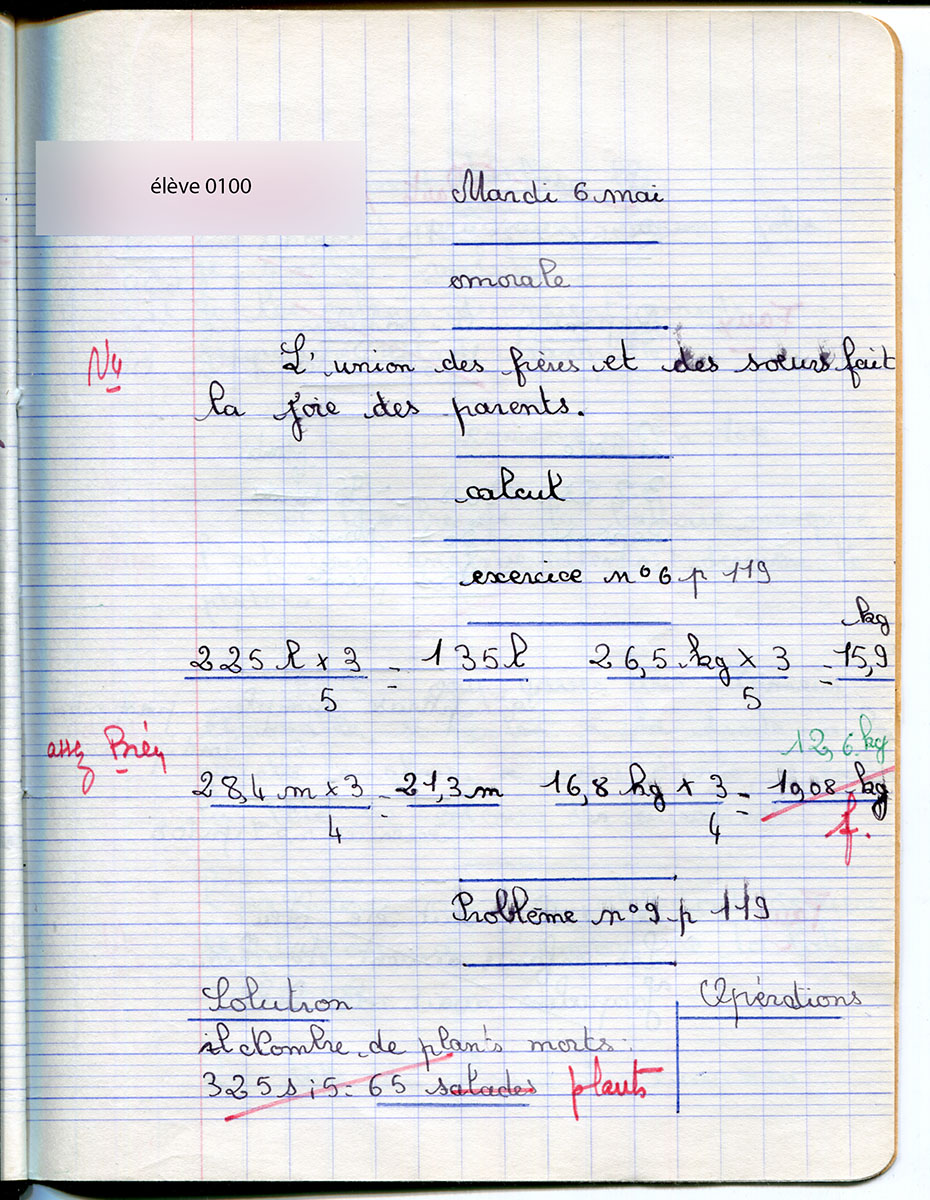 élève 0100
Mardi 6 mai
morale
Vu
L'union des frères et des sœurs fait
la joie des parents.
calcul
exercice n° 6 p 119
kg
225 l x 3 = 135 l 26,5 kg x 3 = 15,9
5 5
assez Bien
12,6 kg
28,4 m x 3 = 21,3 m 16,8 kg x 3 = 1908 kg
4 4
f.
Problème n° 9 p 119
Solution Opérations
Nombre de plants morts :
325 s : 5 = 65 salades plants